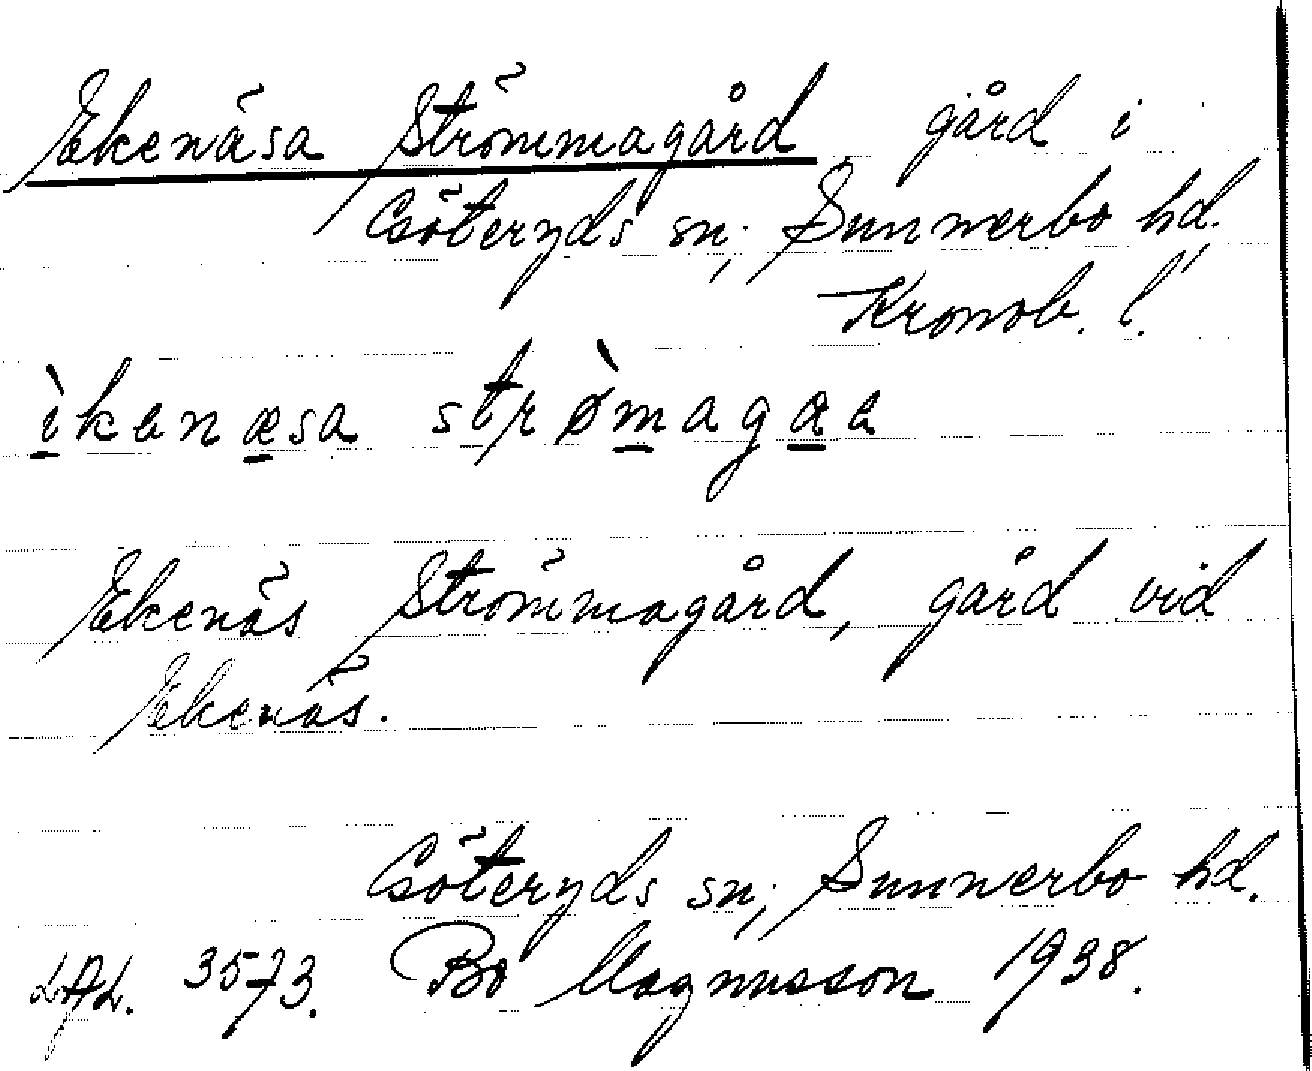 Ekenäsa Strömmagård gård i
Göteryds sn; Sunnerbo hd.,
Kronob. l.
ìkenæsa strø̀magaa
Ekenäs Strömmagård, gård vid
Ekenäs.
Göteryds sn; Sunnerbo hd.
3573. Bo Magnusson 1938.